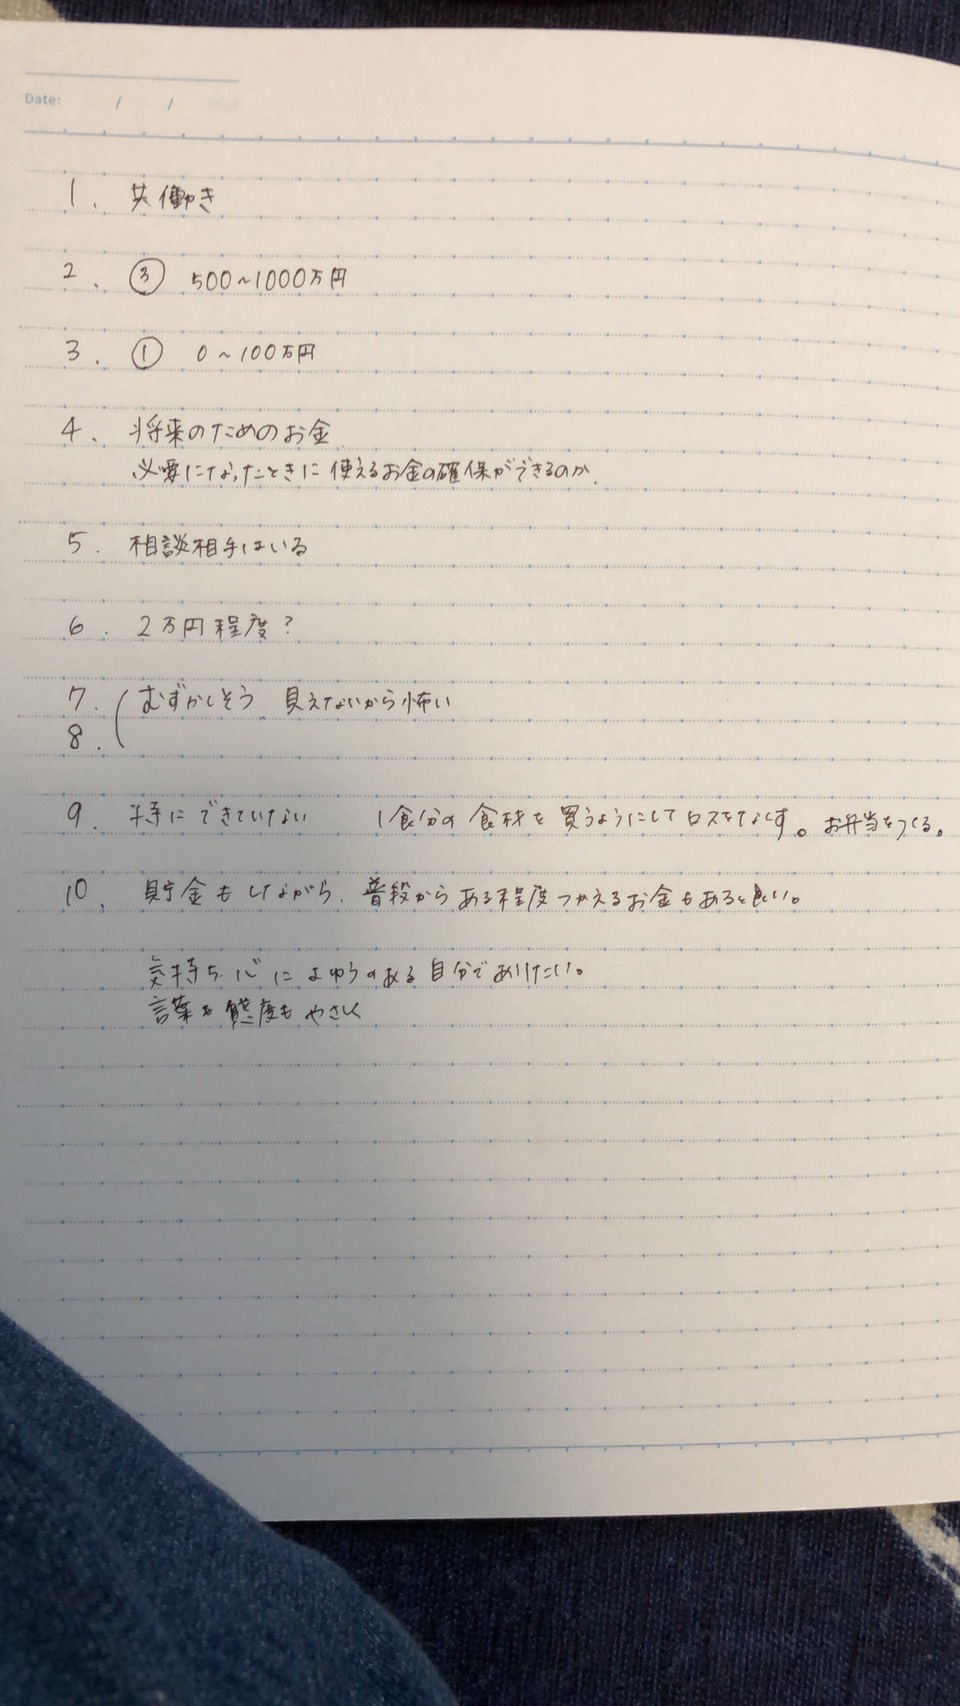 Date: / /
1. 共働き
2. ③ 500~1000万円
3. ① 0~100万円
4. 将来のためのお金
必要になったときに使えるお金の確保ができるのか.
5. 相談相手はいる
6. 2万円程度?
7. むずかしそう 見えないから怖い
8.
9. 特にできていない 1食分の食材を買うようにしてロスをなくす。お弁当をつくる。
10. 貯金もしながら、普段からある程度つかえるお金もあると良い。
気持ち 心によゆうのある自分でありたい。
言葉も態度もやさしく